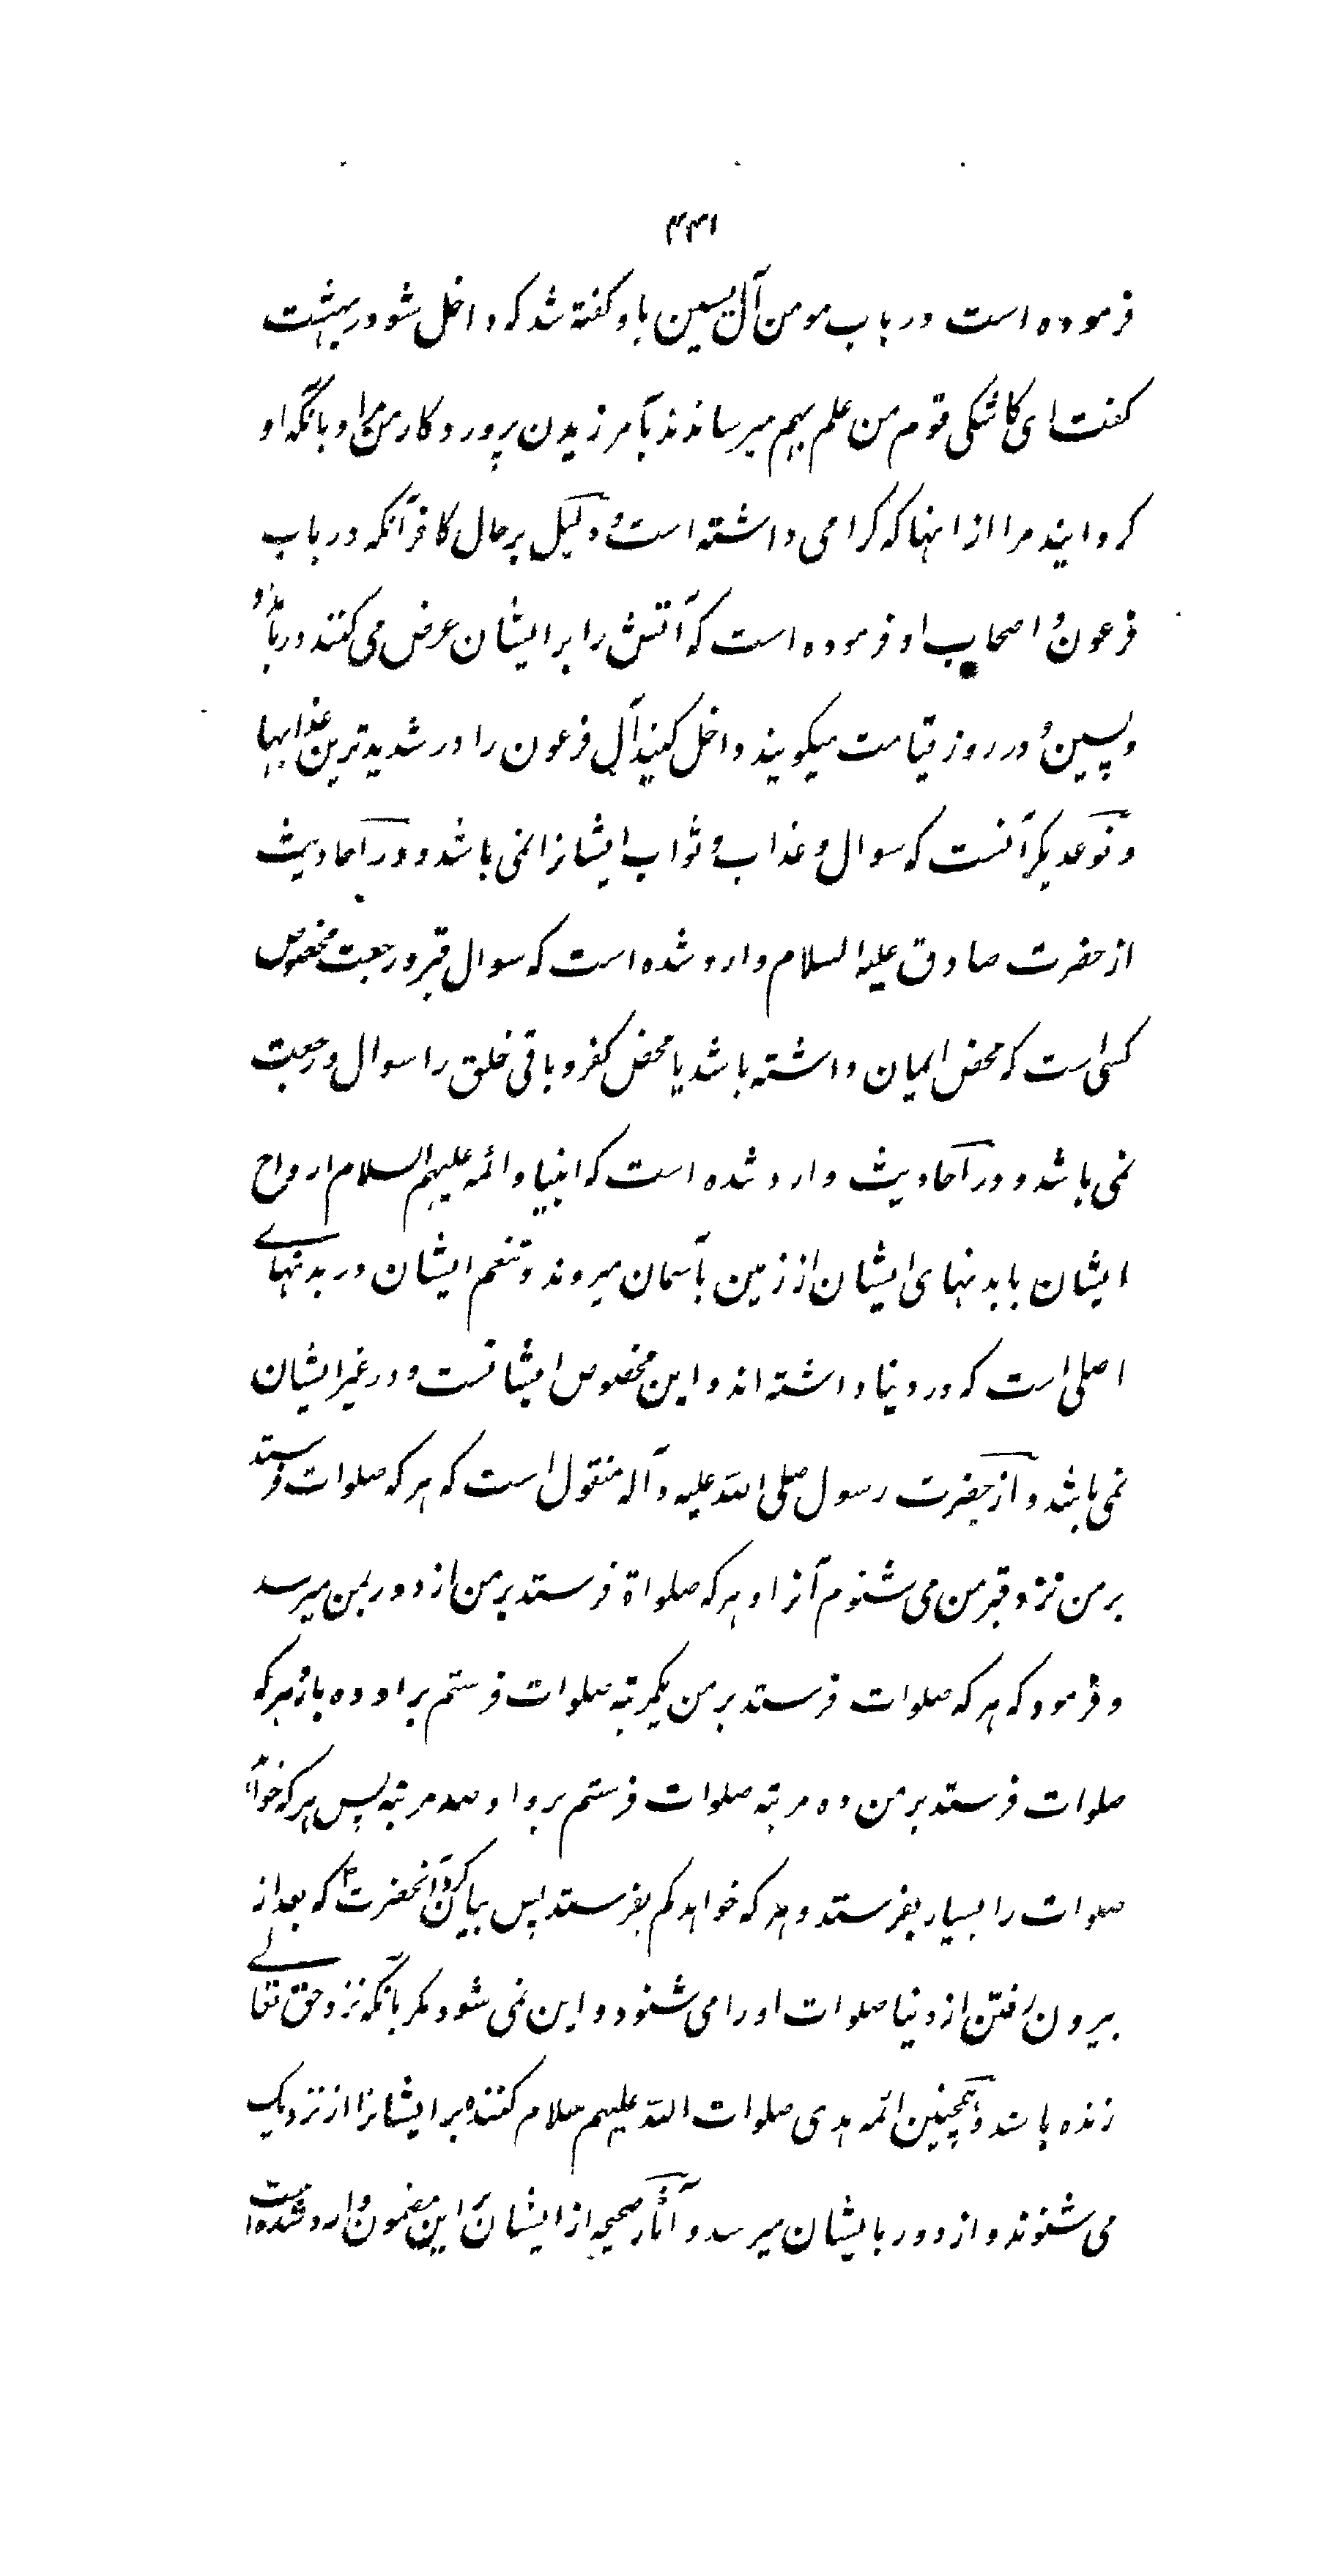 ۴۳۱
فرموده است در باب مومن آل یسین باو گفته شد که داخل شو در بهشت
گفت ای کاشکی قوم من علم بهم میرساندند بآمرزیدن پروردگار من مرا و بانگه او
گردانید مرا از انها که گرامی داشته است و دلیل بر حال کافر آنکه در باب
فرعون و اصحاب او فرموده است که آتش را بر ایشان عرض می کنند در بامداد
و پسین و در روز قیامت میگویند داخل کنید آل فرعون را در شدیدترین عذابها
و نوعدیگر آنست که سوال و عذاب و ثواب ایشانرا نمی باشد و در احادیث
از حضرت صادق علیه السلام وارد شده است که سوال قبر و رجعت مخصوص
کسی است که محض ایمان داشته باشد یا محض کفر و باقی خلق را سوال و رجعت
نمی باشد و در احادیث وارد شده است که انبیا و ائمه علیهم السلام ارواح
ایشان با بدنهای ایشان از زمین بآسمان میروند و تنعم ایشان در بدنهاے
اصلی است که در دنیا داشته اند و این مخصوص ایشانست و در غیر ایشان
نمی باشد و از حضرت رسول صلی الله علیه و آله منقول است که هر که صلوات فرستد
بر من نزد قبر من می شنوم آنرا و هر که صلواة فرستد بر من از دور بمن میرسد
و فرمود که هر که صلوات فرستد بر من یکمرتبه صلوات فرستم بر او ده بار و هر که
صلوات فرستد بر من ده مرتبه صلوات فرستم بر او صد مرتبه پس هر که خواهد
صلوات را بسیار بفرستد و هر که خواهد کم بفرستد پس بیان کرد آنحضرت ص که بعد از
بیرون رفتن از دنیا صلوات او را می شنود و این نمی شود مگر بانکه نزد حق تعالے
زنده باشد و همچنین ائمه هدی صلوات الله علیهم سلام کننده بر ایشانرا از نزدیک
می شنوند و از دور بایشان میرسد و آثار صحیحه از ایشان بر این مضمون وارد شده است